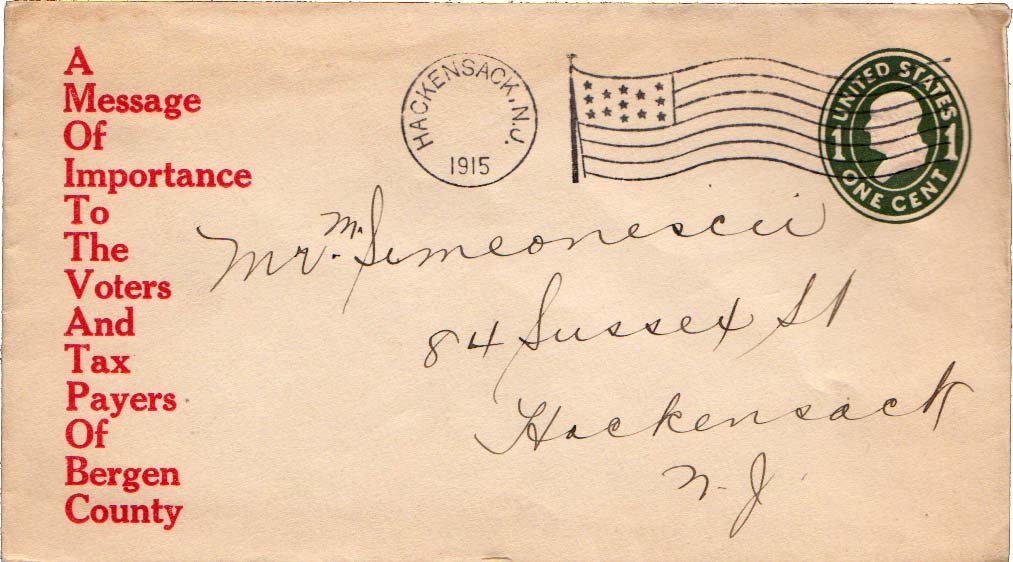 A
Message
Of
Importance
To
The
Voters
And
Tax
Payers
Of
Bergen
County
HACKENSACK, N.J.
1915
UNITED STATES
1 1
ONE CENT
Mr. M. Simeonescu
84 Sussex St
Hackensack
N. J.